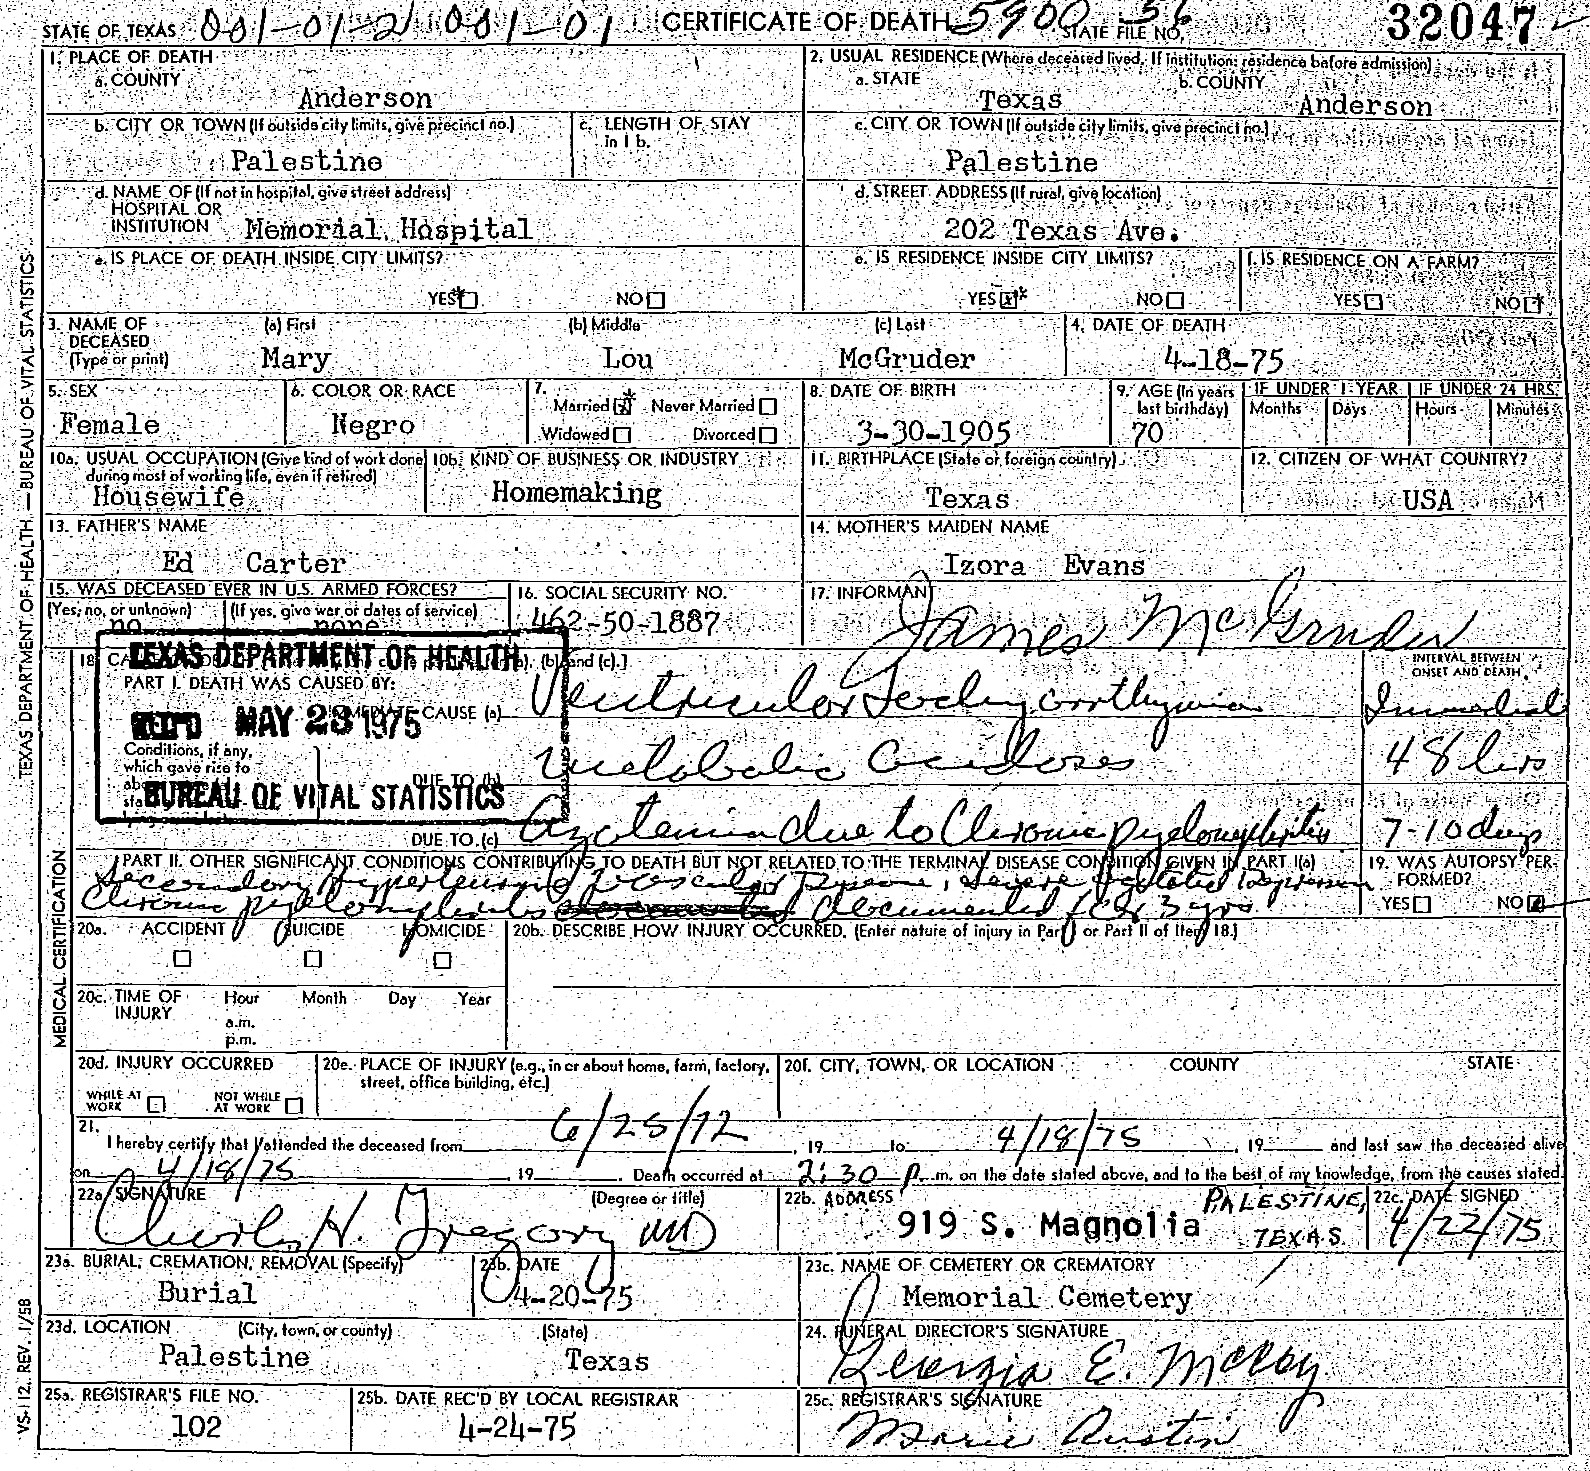 STATE OF TEXAS 001-01-2 001-01 CERTIFICATE OF DEATH 5900 56 STATE FILE NO. 32047
1. PLACE OF DEATH
a. COUNTY
Anderson
2. USUAL RESIDENCE (Where deceased lived. If institution: residence before admission)
a. STATE b. COUNTY
Texas Anderson
b. CITY OR TOWN (If outside city limits, give precinct no.)
Palestine
c. LENGTH OF STAY
in 1 b.
c. CITY OR TOWN (If outside city limits, give precinct no.)
Palestine
d. NAME OF (If not in hospital, give street address)
HOSPITAL OR
INSTITUTION Memorial Hospital
d. STREET ADDRESS (If rural, give location)
202 Texas Ave.
e. IS PLACE OF DEATH INSIDE CITY LIMITS?
YES NO
e. IS RESIDENCE INSIDE CITY LIMITS?
YES x NO
f. IS RESIDENCE ON A FARM?
YES NO
3. NAME OF
DECEASED
(Type or print)
(a) First (b) Middle (c) Last
Mary Lou McGruder
4. DATE OF DEATH
4-18-75
5. SEX
Female
6. COLOR OR RACE
Negro
7.
Married x Never Married
Widowed Divorced
8. DATE OF BIRTH
3-30-1905
9. AGE (In years
last birthday)
70
IF UNDER 1 YEAR IF UNDER 24 HRS.
Months Days Hours Minutes
10a. USUAL OCCUPATION (Give kind of work done
during most of working life, even if retired)
Housewife
10b. KIND OF BUSINESS OR INDUSTRY
Homemaking
11. BIRTHPLACE (State or foreign country)
Texas
12. CITIZEN OF WHAT COUNTRY?
USA
13. FATHER'S NAME
Ed Carter
14. MOTHER'S MAIDEN NAME
Izora Evans
15. WAS DECEASED EVER IN U.S. ARMED FORCES?
(Yes, no, or unknown) (If yes, give war or dates of service)
no none
16. SOCIAL SECURITY NO.
462-50-1887
17. INFORMANT
James McGruder
TEXAS DEPARTMENT OF HEALTH
REC'D MAY 23 1975
BUREAU OF VITAL STATISTICS
18. (b) and (c).]
PART I. DEATH WAS CAUSED BY:
CAUSE (a) Ventricular
INTERVAL BETWEEN
ONSET AND DEATH
Conditions, if any,
which gave rise to
DUE TO (b) metabolic
48 hrs
DUE TO (c) Azotemia due to Chronic pyelonephritis
7-10 days
PART II. OTHER SIGNIFICANT CONDITIONS CONTRIBUTING TO DEATH BUT NOT RELATED TO THE TERMINAL DISEASE CONDITION GIVEN IN PART I(a)
Secondary Severe
Chronic pyelonephritis documented for 3 yrs
19. WAS AUTOPSY PER-
FORMED?
YES NO
20a. ACCIDENT SUICIDE HOMICIDE
20b. DESCRIBE HOW INJURY OCCURRED. (Enter nature of injury in Part I or Part II of Item 18.)
20c. TIME OF
INJURY
Hour Month Day Year
a.m.
p.m.
20d. INJURY OCCURRED
WHILE AT
WORK
NOT WHILE
AT WORK
20e. PLACE OF INJURY (e.g., in or about home, farm, factory,
street, office building, etc.)
20f. CITY, TOWN, OR LOCATION COUNTY STATE
21.
I hereby certify that I attended the deceased from 6/25/72, 19 to 4/18/75, 19 and last saw the deceased alive
on 4/18/75 19 . Death occurred at 2:30 p.m. on the date stated above, and to the best of my knowledge, from the causes stated.
22a. SIGNATURE (Degree or title)
Charles H. Gregory MD
22b. ADDRESS
919 S. Magnolia PALESTINE, TEXAS
22c. DATE SIGNED
4/22/75
23a. BURIAL, CREMATION, REMOVAL (Specify)
Burial
23b. DATE
4-20-75
23c. NAME OF CEMETERY OR CREMATORY
Memorial Cemetery
23d. LOCATION (City, town, or county) (State)
Palestine Texas
24. FUNERAL DIRECTOR'S SIGNATURE
Georgia E. McCoy
25a. REGISTRAR'S FILE NO.
102
25b. DATE REC'D BY LOCAL REGISTRAR
4-24-75
25c. REGISTRAR'S SIGNATURE
Marie Austin
TEXAS DEPARTMENT OF HEALTH — BUREAU OF VITAL STATISTICS
MEDICAL CERTIFICATION
VS-112. REV. 1/58